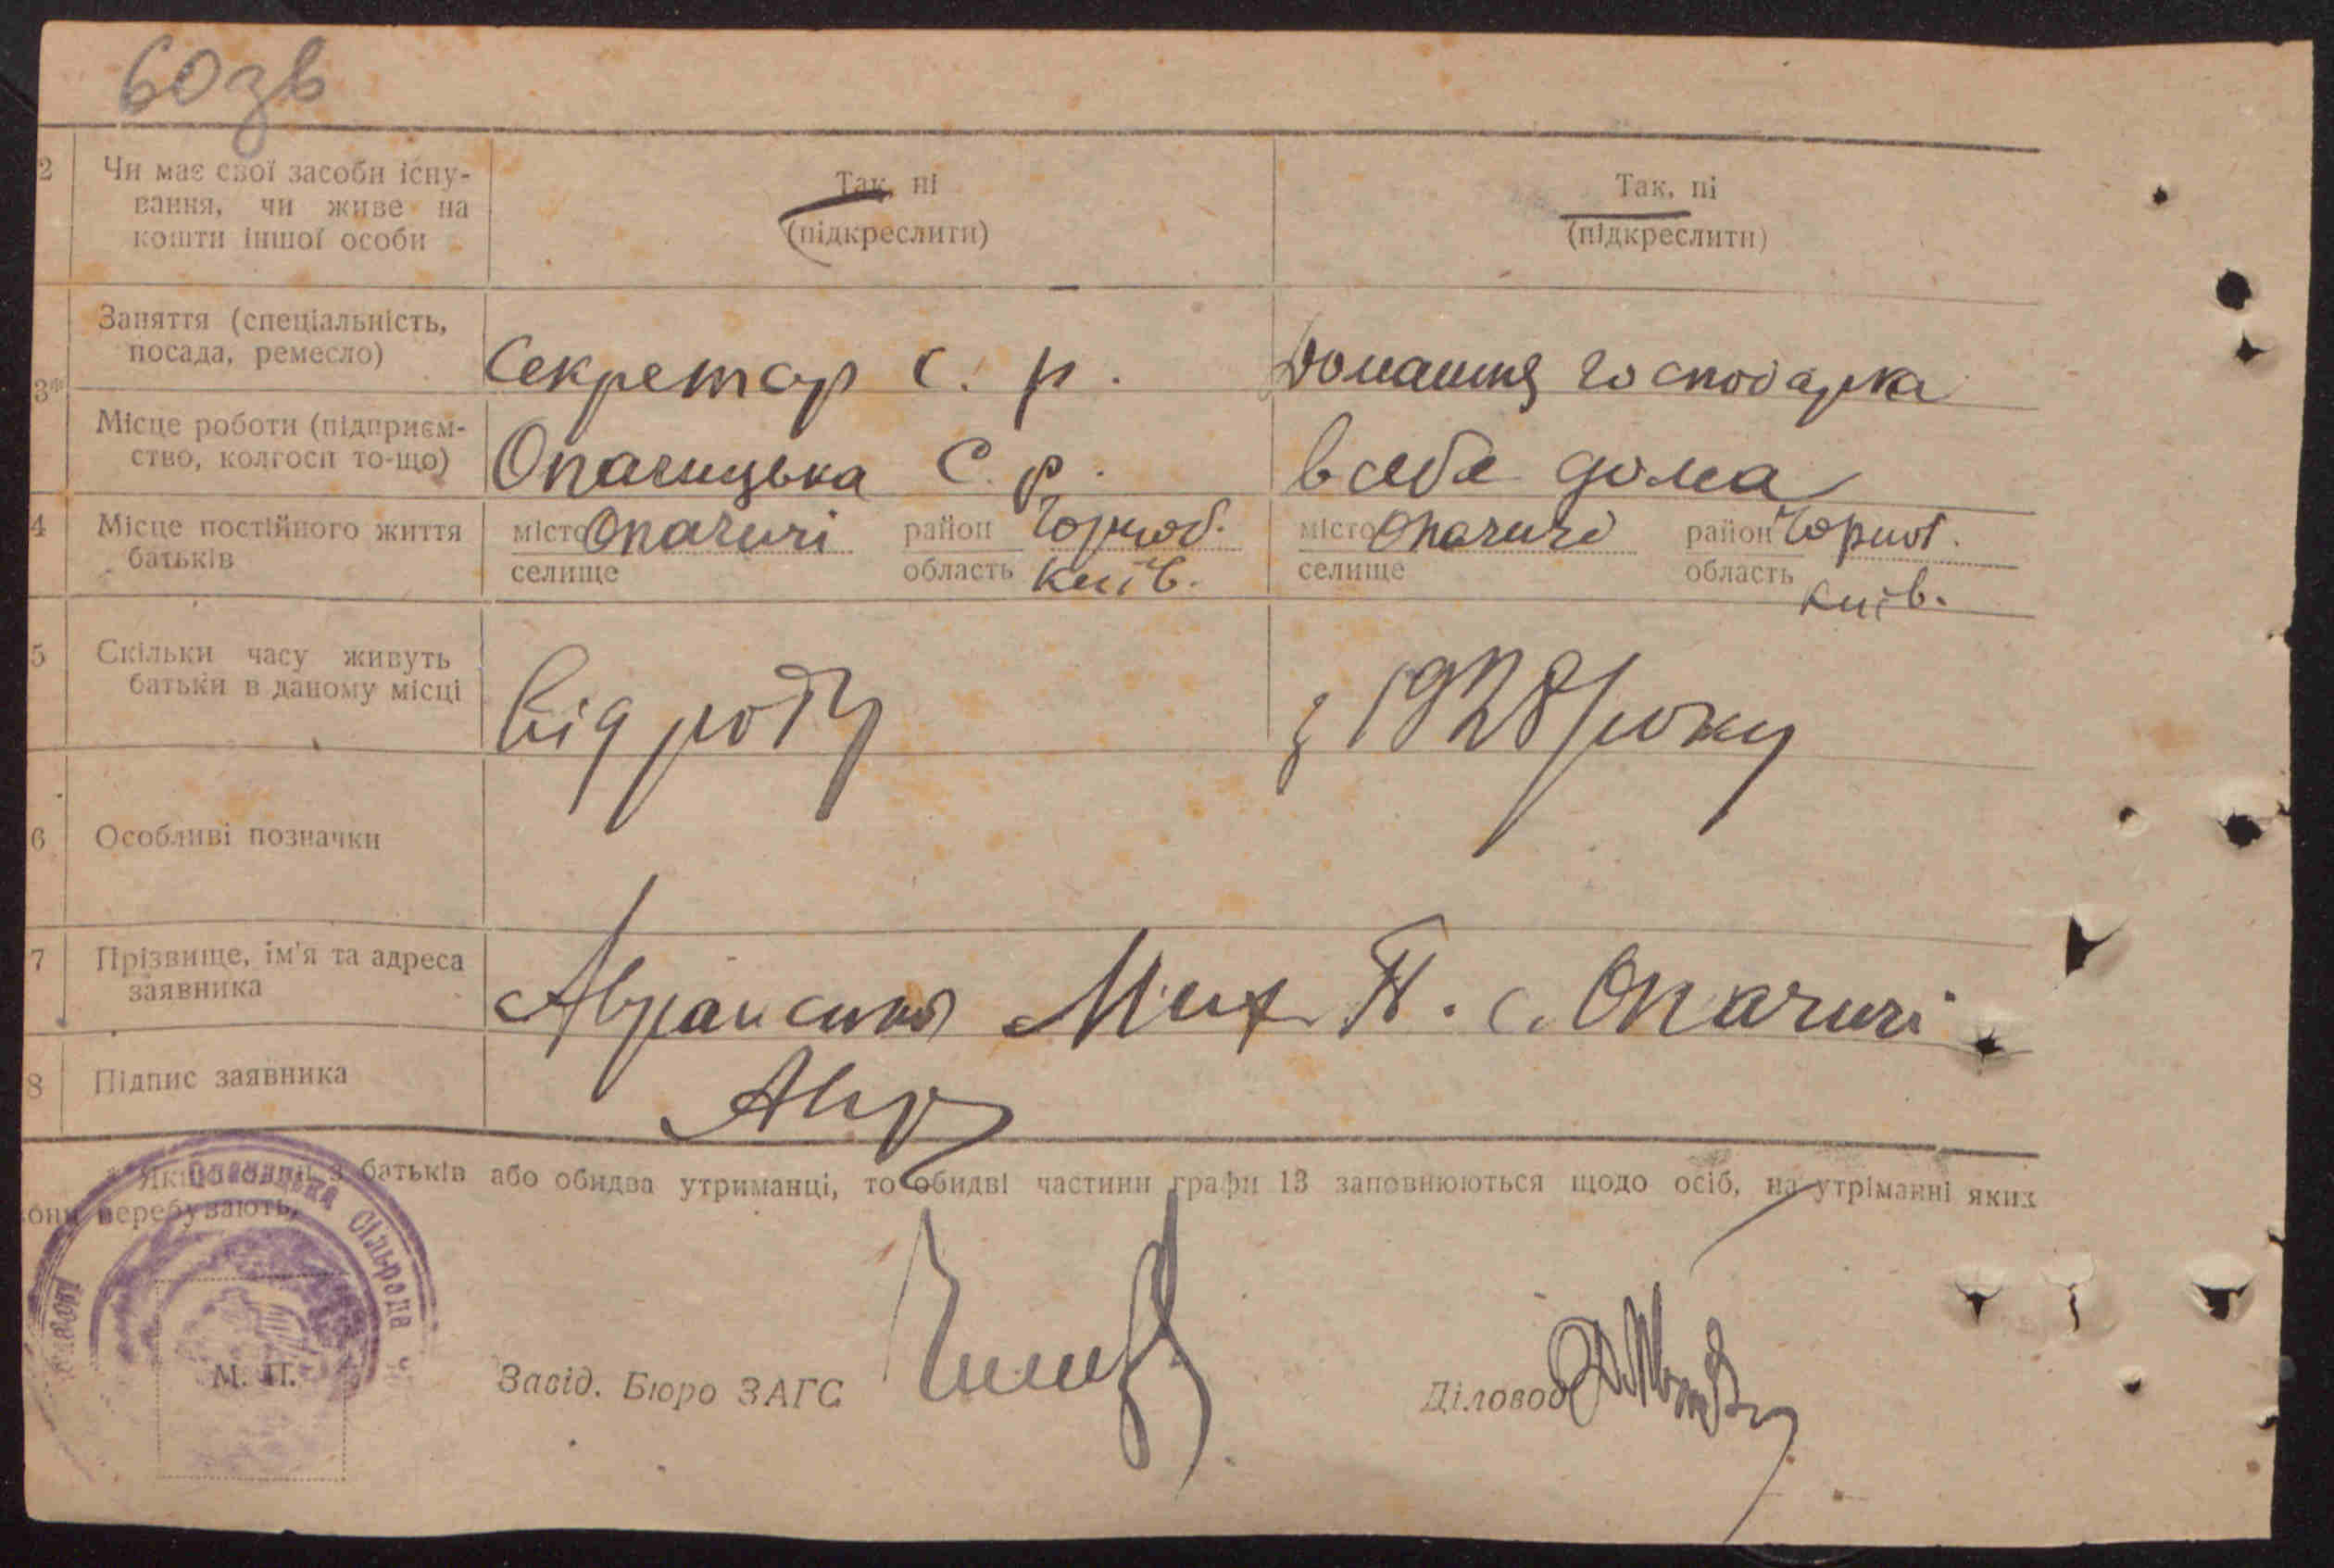 60зв
2 Чи має свої засоби існу-
вання, чи живе на
кошти іншої особи
Так, ні
(підкреслити)
Так, ні
(підкреслити)
3* Заняття (спеціальність,
посада, ремесло)
Секретар С. р.
Домашня господарка
Місце роботи (підприєм-
ство, колгосп то-що)
Опачицька С. р.
в себе дома
4 Місце постійного життя
батьків
місто Опачичі район Чорноб.
селище область Київ.
місто Опачичі район Чорноб.
селище область Київ.
5 Скільки часу живуть
батьки в даному місці
Від роду
з 1928 року
6 Особливі позначки
7 Прізвище, ім'я та адреса
заявника
Мих П. с. Опачичі
8 Підпис заявника
Авр
* Якщо один з батьків або обидва утриманці, то обидві частини графи 13 заповнюються щодо осіб, на утріманні яких
вони перебувають.
Опачицька Сільрада
М. П.
Завід. Бюро ЗАГС
Діловод